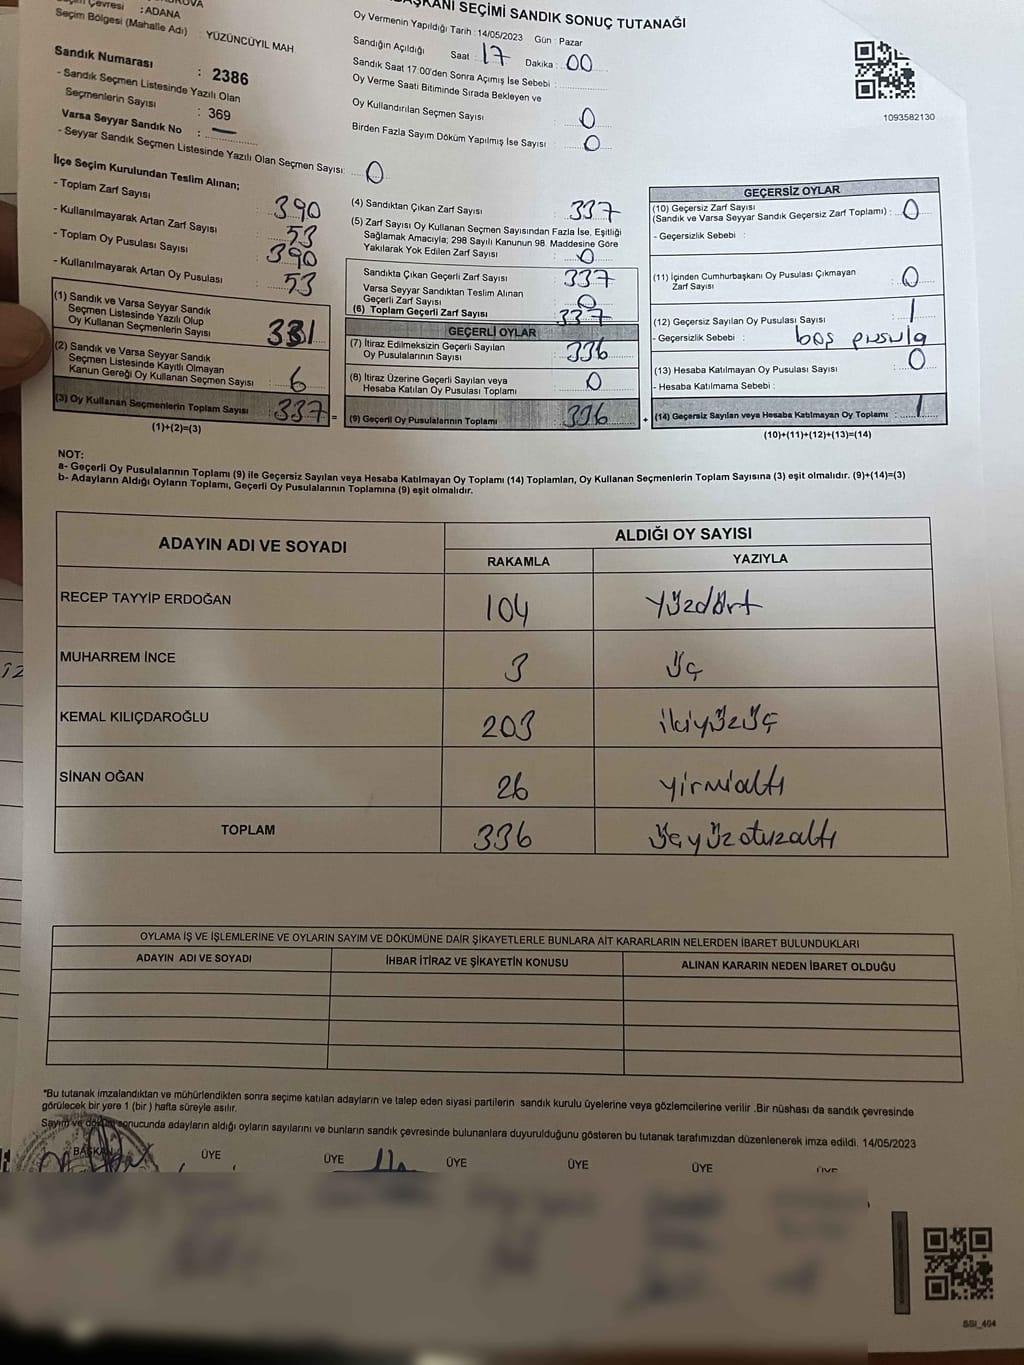 SEÇİMİ SANDIK SONUÇ TUTANAĞI
Çevresi : ADANA
Seçim Bölgesi (Mahalle Adı) : YÜZÜNCÜYIL MAH
Sandık Numarası : 2386
- Sandık Seçmen Listesinde Yazılı Olan
Seçmenlerin Sayısı : 369
Varsa Seyyar Sandık No : —
- Seyyar Sandık Seçmen Listesinde Yazılı Olan Seçmen Sayısı: 0
Oy Vermenin Yapıldığı Tarih : 14/05/2023 Gün : Pazar
Sandığın Açıldığı Saat : 17 Dakika : 00
Sandık Saat 17:00'den Sonra Açımış İse Sebebi :
Oy Verme Saati Bitiminde Sırada Bekleyen ve
Oy Kullandırılan Seçmen Sayısı : 0
Birden Fazla Sayım Döküm Yapılmış İse Sayısı : 0
1093582130
İlçe Seçim Kurulundan Teslim Alınan;
- Toplam Zarf Sayısı : 390
- Kullanılmayarak Artan Zarf Sayısı : 53
- Toplam Oy Pusulası Sayısı : 390
- Kullanılmayarak Artan Oy Pusulası : 53
(1) Sandık ve Varsa Seyyar Sandık
Seçmen Listesinde Yazılı Olup
Oy Kullanan Seçmenlerin Sayısı : 331
(2) Sandık ve Varsa Seyyar Sandık
Seçmen Listesinde Kayıtlı Olmayan
Kanun Gereği Oy Kullanan Seçmen Sayısı : 6
(3) Oy Kullanan Seçmenlerin Toplam Sayısı : 337 =
(1)+(2)=(3)
(4) Sandıktan Çıkan Zarf Sayısı : 337
(5) Zarf Sayısı Oy Kullanan Seçmen Sayısından Fazla İse, Eşitliği
Sağlamak Amacıyla; 298 Sayılı Kanunun 98. Maddesine Göre
Yakılarak Yok Edilen Zarf Sayısı : 0
Sandıkta Çıkan Geçerli Zarf Sayısı : 337
Varsa Seyyar Sandıktan Teslim Alınan
Geçerli Zarf Sayısı : 0
(6) Toplam Geçerli Zarf Sayısı : 337
GEÇERLİ OYLAR
(7) İtiraz Edilmeksizin Geçerli Sayılan
Oy Pusulalarının Sayısı : 336
(8) İtiraz Üzerine Geçerli Sayılan veya
Hesaba Katılan Oy Pusulası Toplamı : 0
(9) Geçerli Oy Pusulalarının Toplamı : 336 +
GEÇERSİZ OYLAR
(10) Geçersiz Zarf Sayısı
(Sandık ve Varsa Seyyar Sandık Geçersiz Zarf Toplamı) : 0
- Geçersizlik Sebebi :
(11) İçinden Cumhurbaşkanı Oy Pusulası Çıkmayan
Zarf Sayısı : 0
(12) Geçersiz Sayılan Oy Pusulası Sayısı : 1
- Geçersizlik Sebebi : boş pusula
(13) Hesaba Katılmayan Oy Pusulası Sayısı : 0
- Hesaba Katılmama Sebebi :
(14) Geçersiz Sayılan veya Hesaba Katılmayan Oy Toplamı : 1
(10)+(11)+(12)+(13)=(14)
NOT:
a- Geçerli Oy Pusulalarının Toplamı (9) ile Geçersiz Sayılan veya Hesaba Katılmayan Oy Toplamı (14) Toplamları, Oy Kullanan Seçmenlerin Toplam Sayısına (3) eşit olmalıdır. (9)+(14)=(3)
b- Adayların Aldığı Oyların Toplamı, Geçerli Oy Pusulalarının Toplamına (9) eşit olmalıdır.
ADAYIN ADI VE SOYADI ALDIĞI OY SAYISI
RAKAMLA YAZIYLA
RECEP TAYYİP ERDOĞAN 104 yüzdört
MUHARREM İNCE 3 üç
KEMAL KILIÇDAROĞLU 203 ikiyüzüç
SİNAN OĞAN 26 yirmialtı
TOPLAM 336 üçyüzotuzaltı
OYLAMA İŞ VE İŞLEMLERİNE VE OYLARIN SAYIM VE DÖKÜMÜNE DAİR ŞİKAYETLERLE BUNLARA AİT KARARLARIN NELERDEN İBARET BULUNDUKLARI
ADAYIN ADI VE SOYADI İHBAR İTİRAZ VE ŞİKAYETİN KONUSU ALINAN KARARIN NEDEN İBARET OLDUĞU
*Bu tutanak imzalandıktan ve mühürlendikten sonra seçime katılan adayların ve talep eden siyasi partilerin sandık kurulu üyelerine veya gözlemcilerine verilir .Bir nüshası da sandık çevresinde
görülecek bir yere 1 (bir ) hafta süreyle asılır.
Sayım ve döküm sonucunda adayların aldığı oyların sayılarını ve bunların sandık çevresinde bulunanlara duyurulduğunu gösteren bu tutanak tarafımızdan düzenlenerek imza edildi. 14/05/2023
BAŞKAN ÜYE ÜYE ÜYE ÜYE ÜYE ÜYE